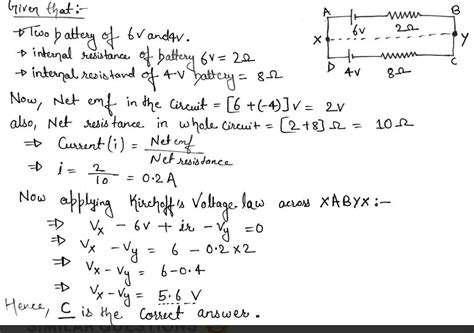 Given that:-
→ Two battery of 6V and 4V.
→ internal resistance of battery 6V = 2Ω
→ internal resistand of 4-V battery = 8Ω
A B
2Ω
X Y
D 4V 8Ω C
Now, Net emf in the circuit = [6+(-4)]V = 2V
also, Net resistance in whole circuit = [2+8]Ω = 10Ω
⇒ Current (i) = Net emf / Net resistance
⇒ i = 2/10 = 0.2A
Now applying Kirchoff's Voltage law across XABYX:-
⇒ Vx - 6V + ir - Vy = 0
⇒ Vx - Vy = 6 - 0.2×2
⇒ Vx - Vy = 6 - 0.4
⇒ Vx - Vy = 5.6 V
Hence, C is the correct answer.
SIMILAR QUESTIONS